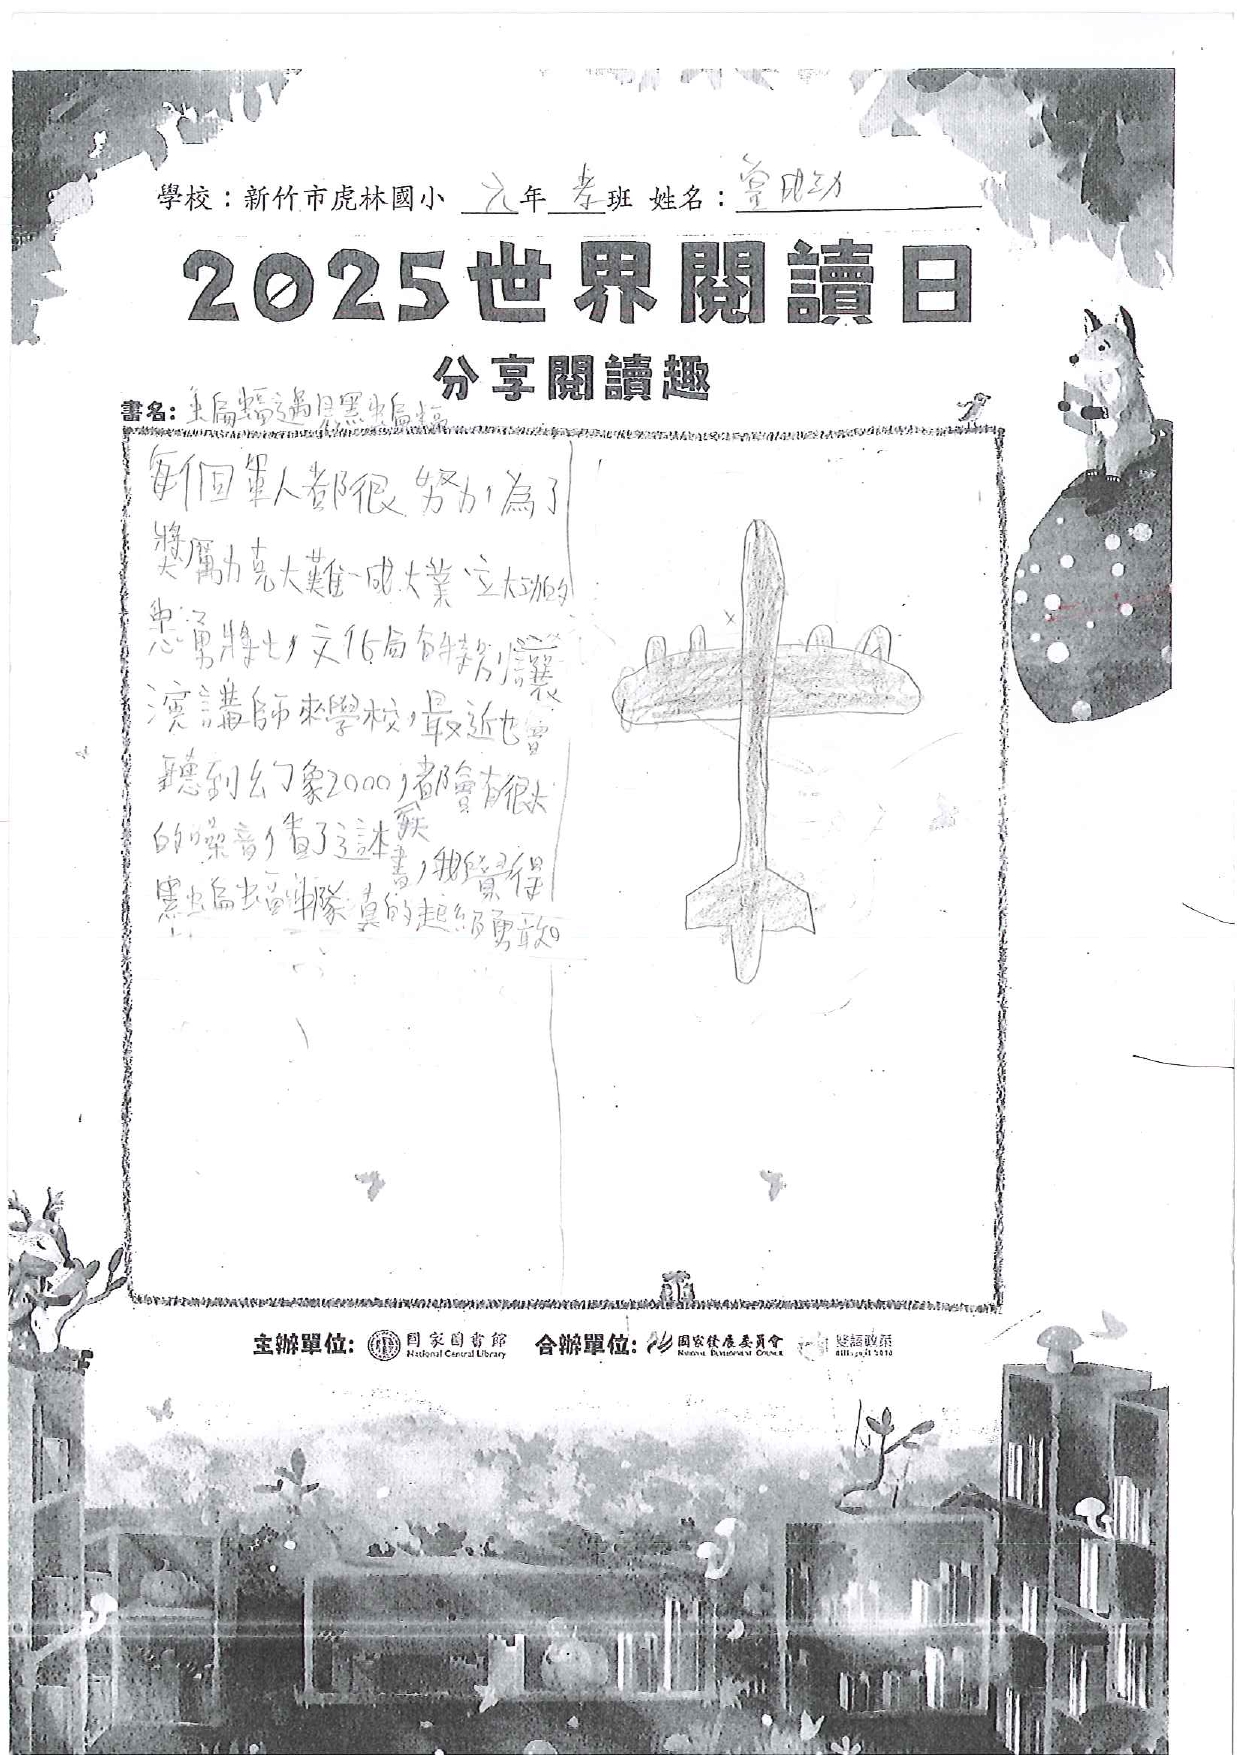 學校：新竹市虎林國小 六年 孝班 姓名：
2025世界閱讀日
分享閱讀趣
書名：蝙蝠遇見黑蝙蝠
每個軍人都很努力，為了
獎勵克大難、成大業、立大功的
忠勇將士，文化局有特別讓
演講師來學校，最近也會
聽到幻象2000，都會有很大
的噪音，看了這本
書，我覺得
黑蝙蝠中隊真的超級勇敢
主辦單位：國家圖書館 National Central Library 合辦單位：國家發展委員會 National Development Council 雙語政策